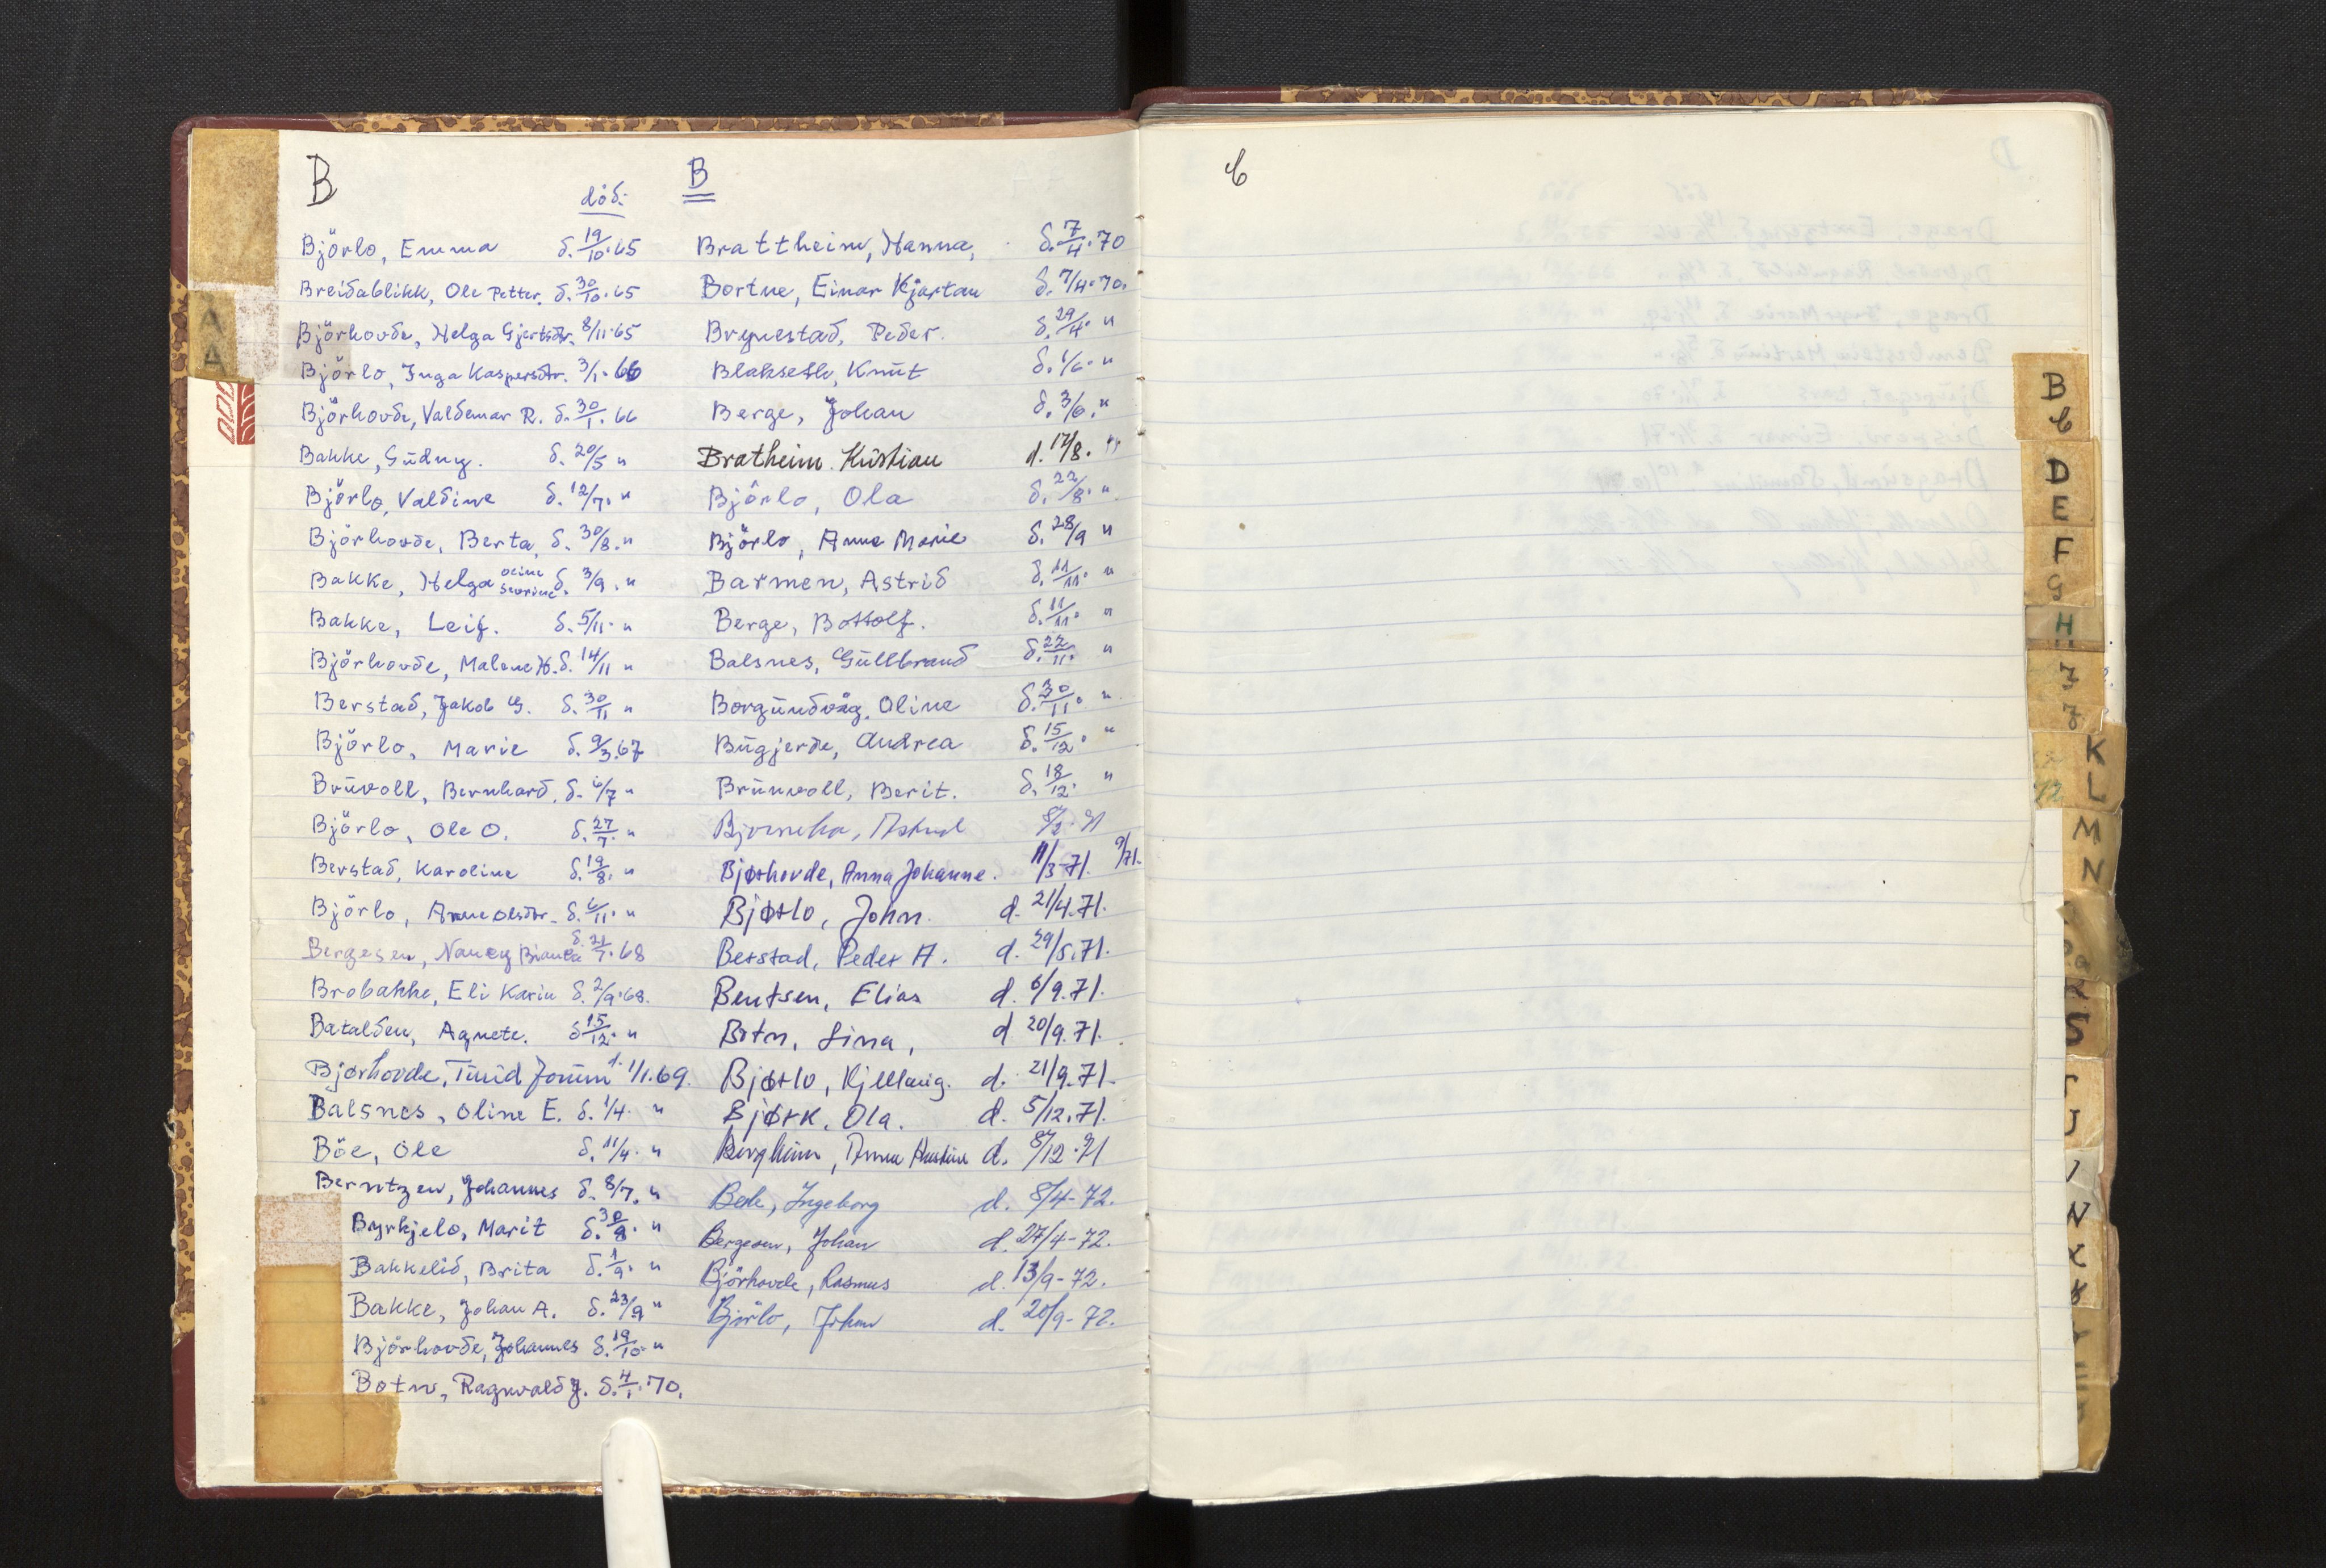 B
död.
Björlo, Emma d. 19/10.65
Breidablikk, Ole Petter. d. 30/10.65
Björhovde, Helga Gjertsdtr. 8/11.65
Björlo, Inga Kaspersdtr. 3/1.66
Björhovde, Valdemar R. d. 30/1.66
Bakke, Gudny. d. 20/5 "
Björlo, Valdine d. 12/7. "
Björhovde, Berta, d. 30/8. "
Bakke, Helga Oline Severine. d. 3/9. "
Bakke, Leif. d. 5/11. "
Björhovde, Malene H. d. 14/11 "
Berstad, Jakob G. d. 30/11 "
Björlo, Marie d. 9/3.67
Bruvoll, Bernhard, d. 6/7 "
Björlo, Ole O. d. 27/7. "
Berstad, Karoline d. 19/8. "
Björlo, Anne Olsdtr. d. 6/11. "
Bergesen, Nancy Bianca d. 31/7.68
Brobakke, Eli Karin d. 2/9.68.
Batalden, Agnete. d. 15/12. "
Bjørhovde, Turid Jorunn d. 1/1.69.
Balsnes, Oline E. d. 1/4. "
Böe, Ole d. 11/4. "
Berntzen, Johannes d. 8/7. "
Byrkjelo, Marit d. 30/8. "
Bakkelid, Brita d. 1/9. "
Bakke, Johan A. d. 23/9 "
Björhovde, Johannes d. 19/10 "
Botn, Ragnvald J. d. 4/1.70.
B
Brattheim, Hanna, d. 7/4.70
Bortne, Einar Kjartan d. 7/4.70.
Brynestad, Peder. d. 29/4. "
Blaksetli, Knut d. 1/6. "
Berge, Johan d. 3/6. "
Bratheim Kristian d. 17/8. "
Björlo, Ola d. 22/8. "
Björlo, Anne Marie d. 28/9 "
Barmen, Astrid d. 11/11. "
Berge, Bottolf. d. 11/11. "
Balsnes, Gullbrand d. 22/11. "
Borgundvåg, Oline d. 30/11. "
Bugjerde, Andrea d. 15/12. "
Brunvoll, Berit. d. 18/12. "
8/2.71
Bjørhovde, Anna Johanne. 11/3-71. 9/71.
Bjørlo, John. d. 21/4.71.
Berstad, Peder A. d. 29/5.71.
Bentsen, Elias d. 6/9.71.
Botn, Lina, d 20/9.71.
Bjørlo, Kjellaug. d. 21/9.71.
Bjørk, Ola. d. 5/12.71.
Bergheim, Anna d. 8/12.71
Bede, Ingeborg d. 8/4-72.
Bergesen, Johan d. 27/4-72.
Björhovde, Rasmus d. 13/9-72.
Björlo, Johan d. 20/9-72.
C
A
B
C
D
E
F
G
H
I
J
K
L
M
N
R
S